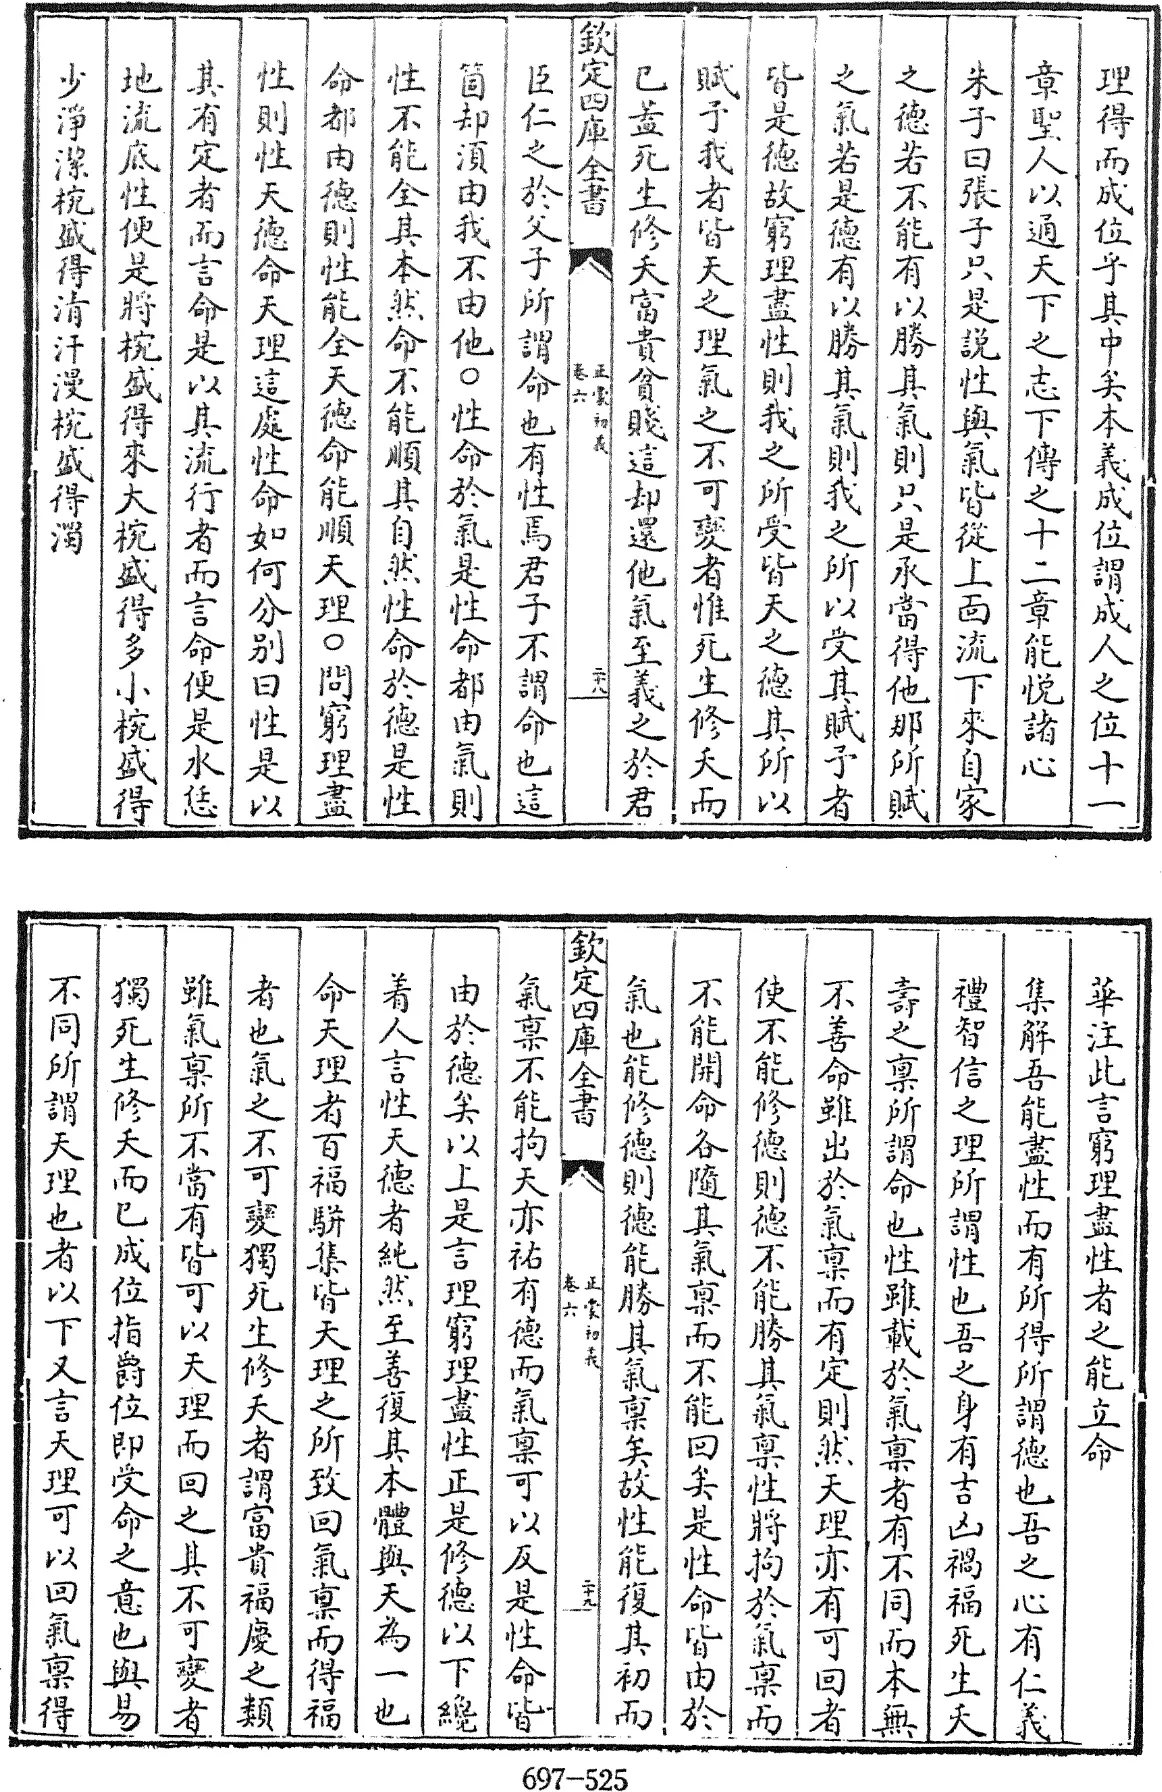 理得而成位乎其中矣本義成位謂成人之位十一
章聖人以通天下之志下傳之十二章能悦諸心
朱子曰張子只是説性與氣皆從上面流下來自家
之德若不能有以勝其氣則只是承當得他那所賦
之氣若是德有以勝其氣則我之所以受其賦予者
皆是德故窮理盡性則我之所受皆天之德其所以
賦予我者皆天之理氣之不可變者惟死生修夭而
已蓋死生修夭富貴貧賤這却還他氣至義之於君
欽定四庫全書
正蒙初義
卷六
二十八
臣仁之於父子所謂命也有性焉君子不謂命也這
箇却須由我不由他○性命於氣是性命都由氣則
性不能全其本然命不能順其自然性命於德是性
命都由德則性能全天德命能順天理○問窮理盡
性則性天德命天理這處性命如何分別曰性是以
其有定者而言命是以其流行者而言命便是水恁
地流底性便是將椀盛得來大椀盛得多小椀盛得
少淨潔椀盛得清汙漫椀盛得濁
華注此言窮理盡性者之能立命
集解吾能盡性而有所得所謂德也吾之心有仁義
禮智信之理所謂性也吾之身有吉凶禍福死生夭
壽之稟所謂命也性雖載於氣稟者有不同而本無
不善命雖出於氣稟而有定則然天理亦有可回者
使不能修德則德不能勝其氣稟性將拘於氣稟而
不能開命各隨其氣稟而不能回矣是性命皆由於
氣也能修德則德能勝其氣稟矣故性能復其初而
欽定四庫全書
正蒙初義
卷六
二十九
氣稟不能拘天亦祐有德而氣稟可以反是性命皆
由於德矣以上是言理窮理盡性正是修德以下纔
着人言性天德者純然至善復其本體與天為一也
命天理者百福駢集皆天理之所致回氣稟而得福
者也氣之不可變獨死生修夭者謂富貴福慶之類
雖氣稟所不當有皆可以天理而回之其不可變者
獨死生修夭而已成位指爵位即受命之意也與易
不同所謂天理也者以下又言天理可以回氣稟得
697-525